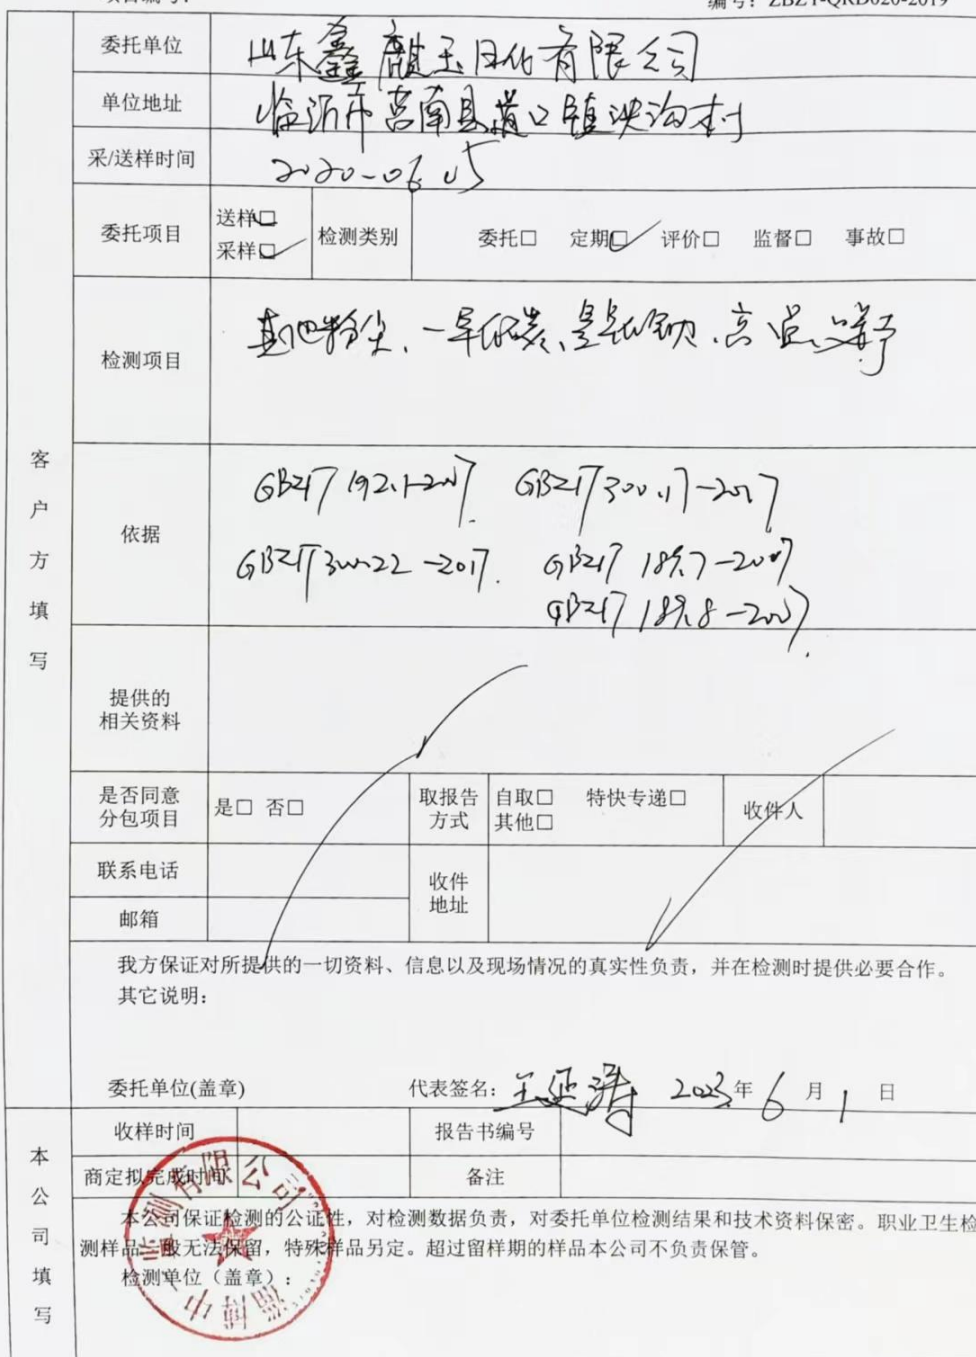 编号：ZBZY-QRD020-2019
客户方填写
委托单位 山东鑫麒玉日化有限公司
单位地址 临沂市莒南县道口镇泱沟村
采/送样时间 2020-06.05
委托项目 送样□ 采样□✓ 检测类别 委托□ 定期□✓ 评价□ 监督□ 事故□
检测项目 其他粉尘、一氧化碳、氢氧化钠、高温、噪声
依据 GBZ/T 192.1-2007 GBZ/T 300.17-2017
GBZ/T 300.22-2017. GBZ/T 189.7-2007
GBZ/T 189.8-2007.
提供的
相关资料
是否同意
分包项目 是□ 否□ 取报告
方式 自取□ 特快专递□
其他□ 收件人
联系电话 收件
地址
邮箱
我方保证对所提供的一切资料、信息以及现场情况的真实性负责，并在检测时提供必要合作。
其它说明：
委托单位(盖章) 代表签名：王延涛 2023年6月1日
本公司填写
收样时间 报告书编号
商定拟完成时间 备注
本公司保证检测的公证性，对检测数据负责，对委托单位检测结果和技术资料保密。职业卫生检
测样品一般无法保留，特殊样品另定。超过留样期的样品本公司不负责保管。
检测单位（盖章）：